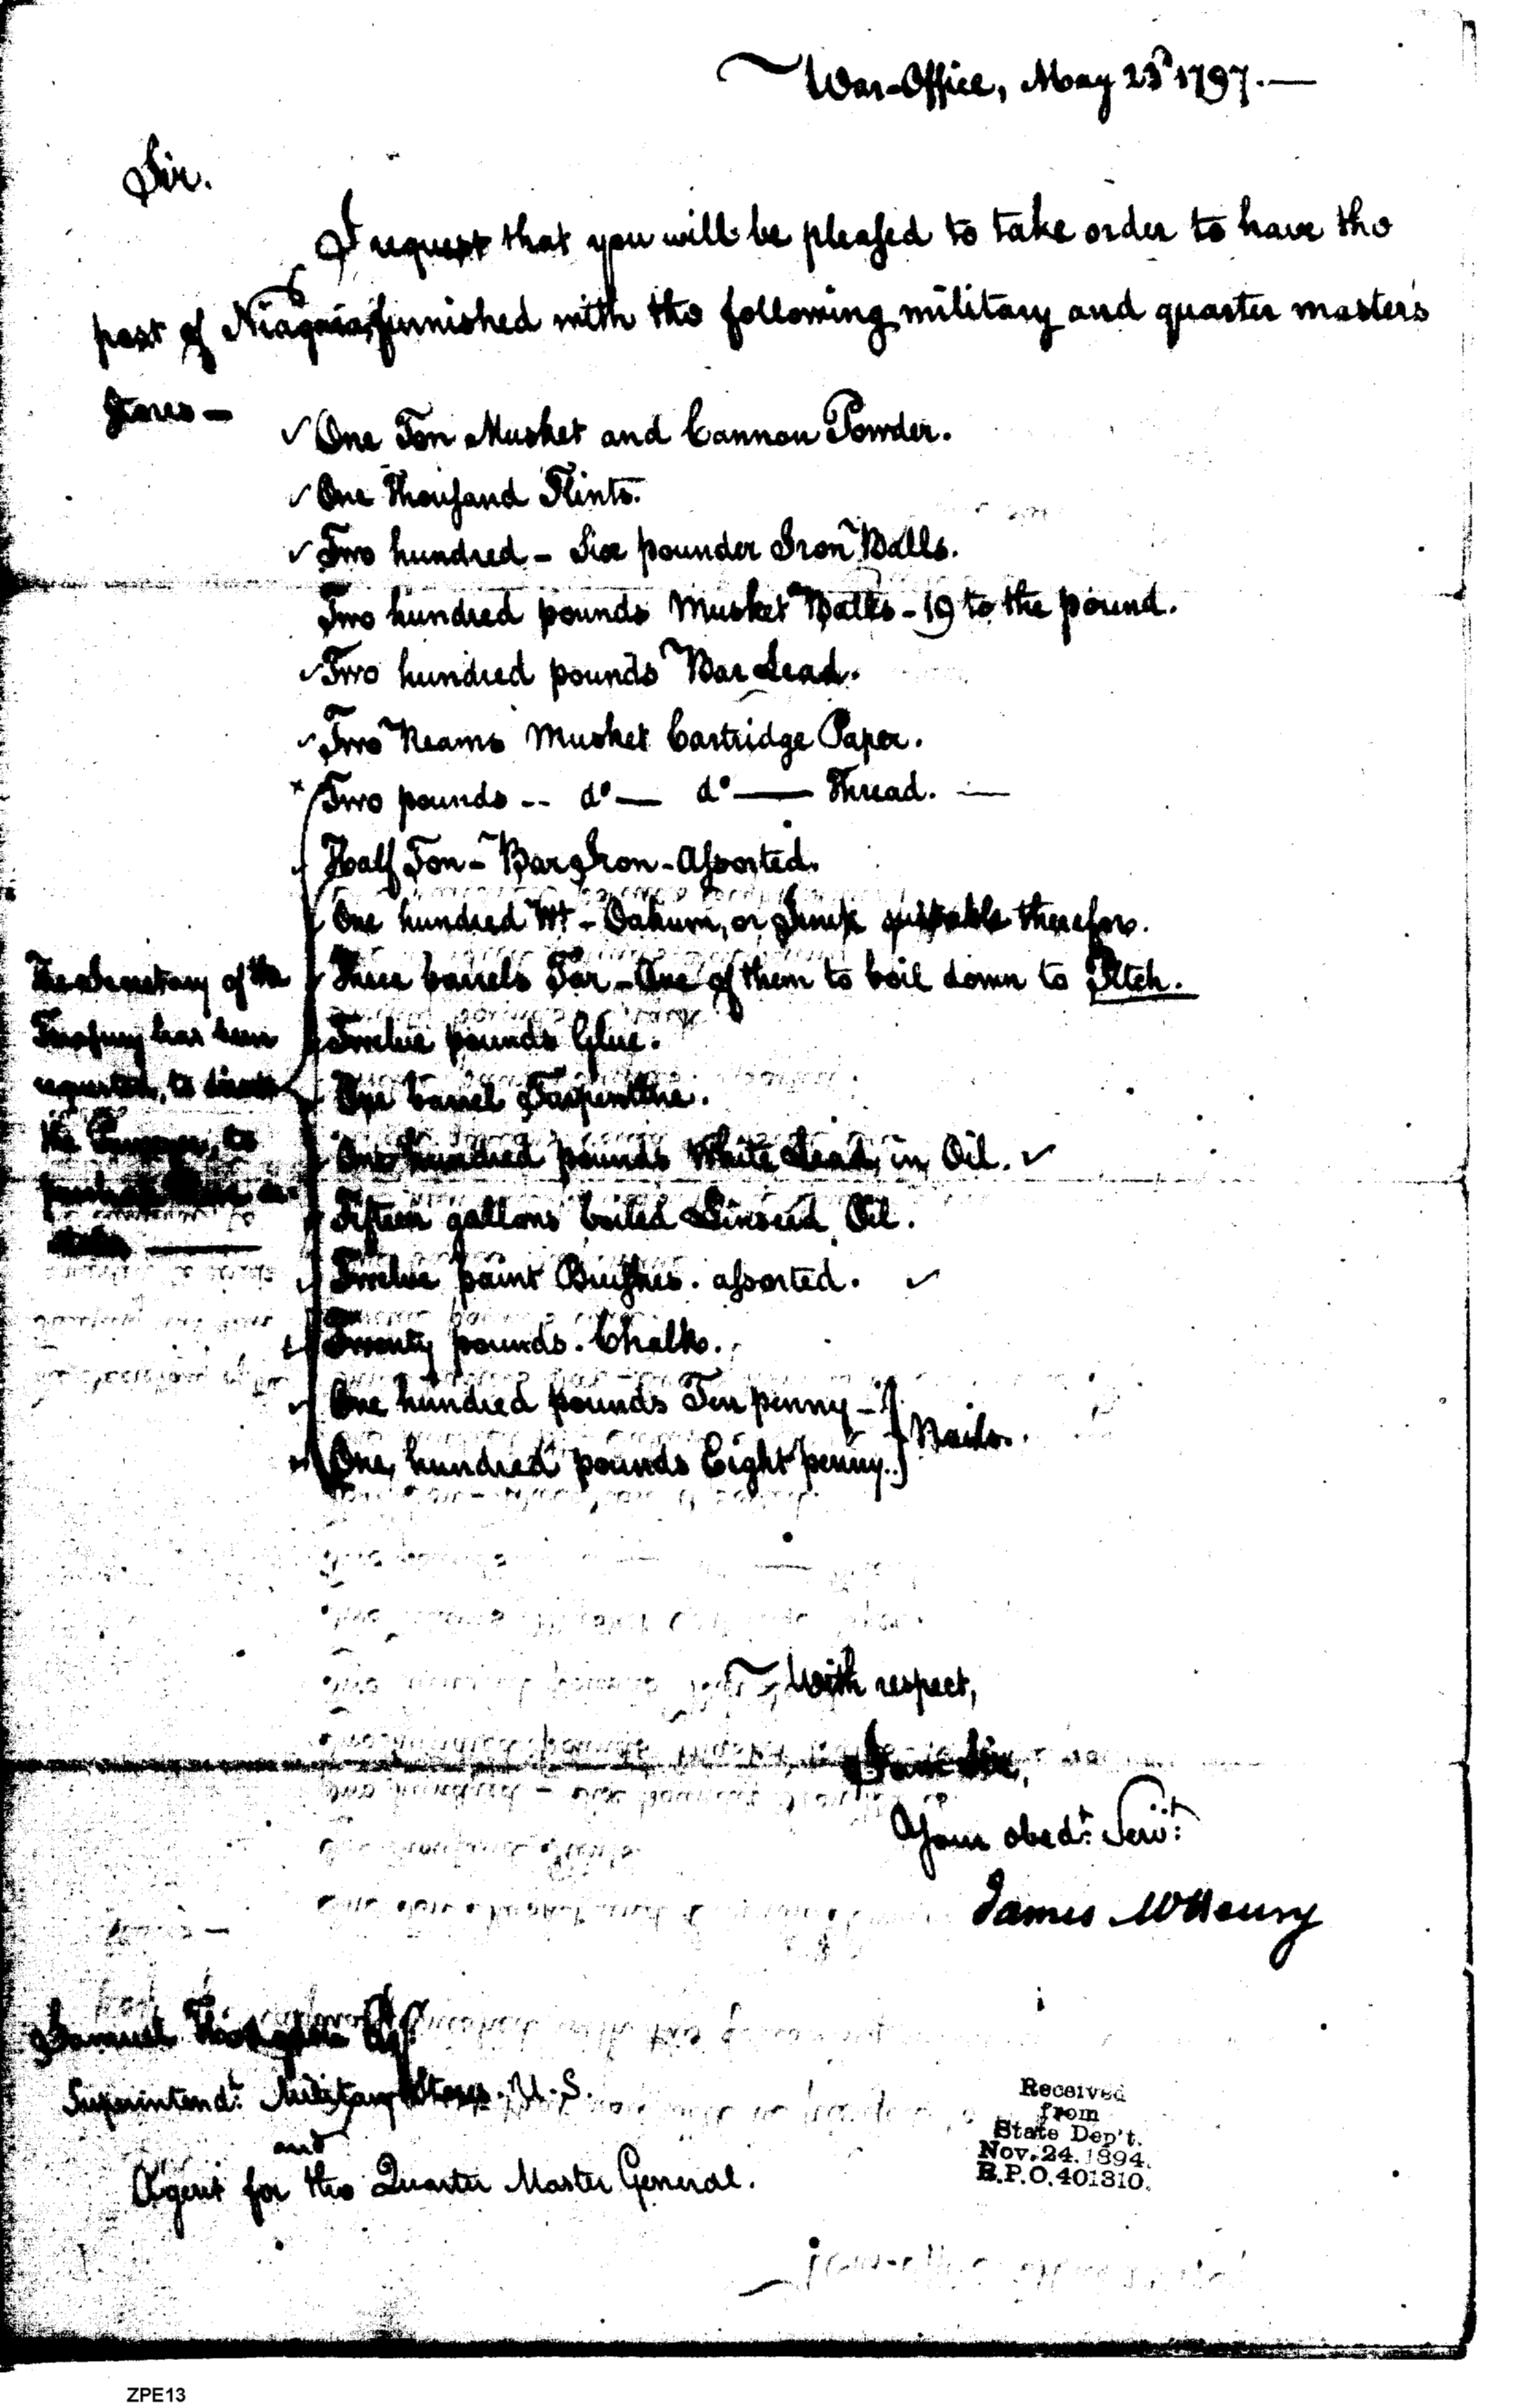 War-Office, May 23d 1797.—
Sir.
I request that you will be pleased to take order to have the
post of Niagara, furnished with the following military and quarter masters
Stores —
One Ton Musket and Cannon Powder.
One Thousand Flints.
Two hundred - Six pounder Iron Balls.
Two hundred pounds Musket Balls - 19 to the pound.
Two hundred pounds Bar Lead.
Two Reams Musket Cartridge Paper.
Two pounds -- do — do — Thread. —
Half Ton - Bar Iron - Assorted.
One hundred Wt - Oakum, or Junk suitable therefor.
Three barrels Tar - One of them to boil down to Pitch.
Twelve pounds Glue.
One barrel Turpentine.
One hundred pounds White Lead, in Oil.
Fifteen gallons boiled Linseed Oil.
Twelve paint Brushes. assorted.
Twenty pounds. Chalk.
One hundred pounds Ten penny -
One hundred pounds Eight penny. } Nails.
The Secretary of the
Treasury has been
requested, to direct
the Purveyor, to
purchase these ar-
ticles —
With respect,
I am Sir,
Your obedt. Servt.
James McHenry
Samuel Hodgdon Esqr.
Superintendt. Military Stores. U.S.
and
Agent for the Quarter Master General.
Received
from
State Dep't.
Nov. 24. 1894.
R.P.O. 401310.
ZPE13